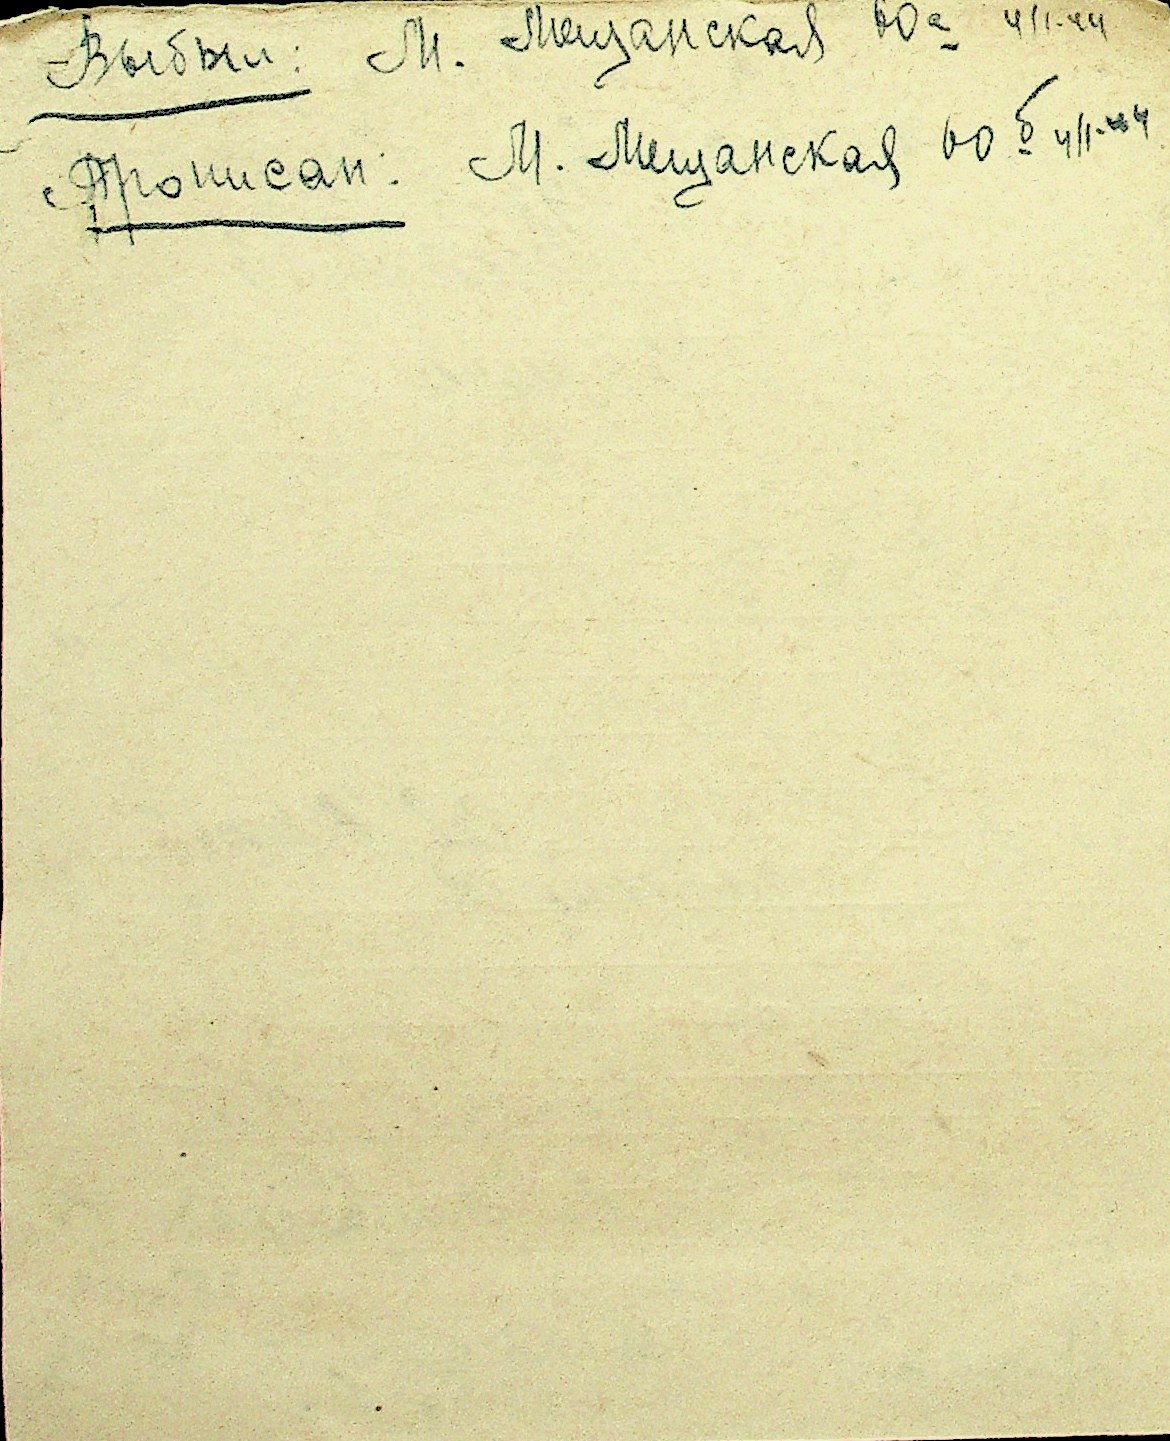 Выбыл: М. Мещанская 60а 4/I-44
Прописан: М. Мещанская 60б 4/I-44